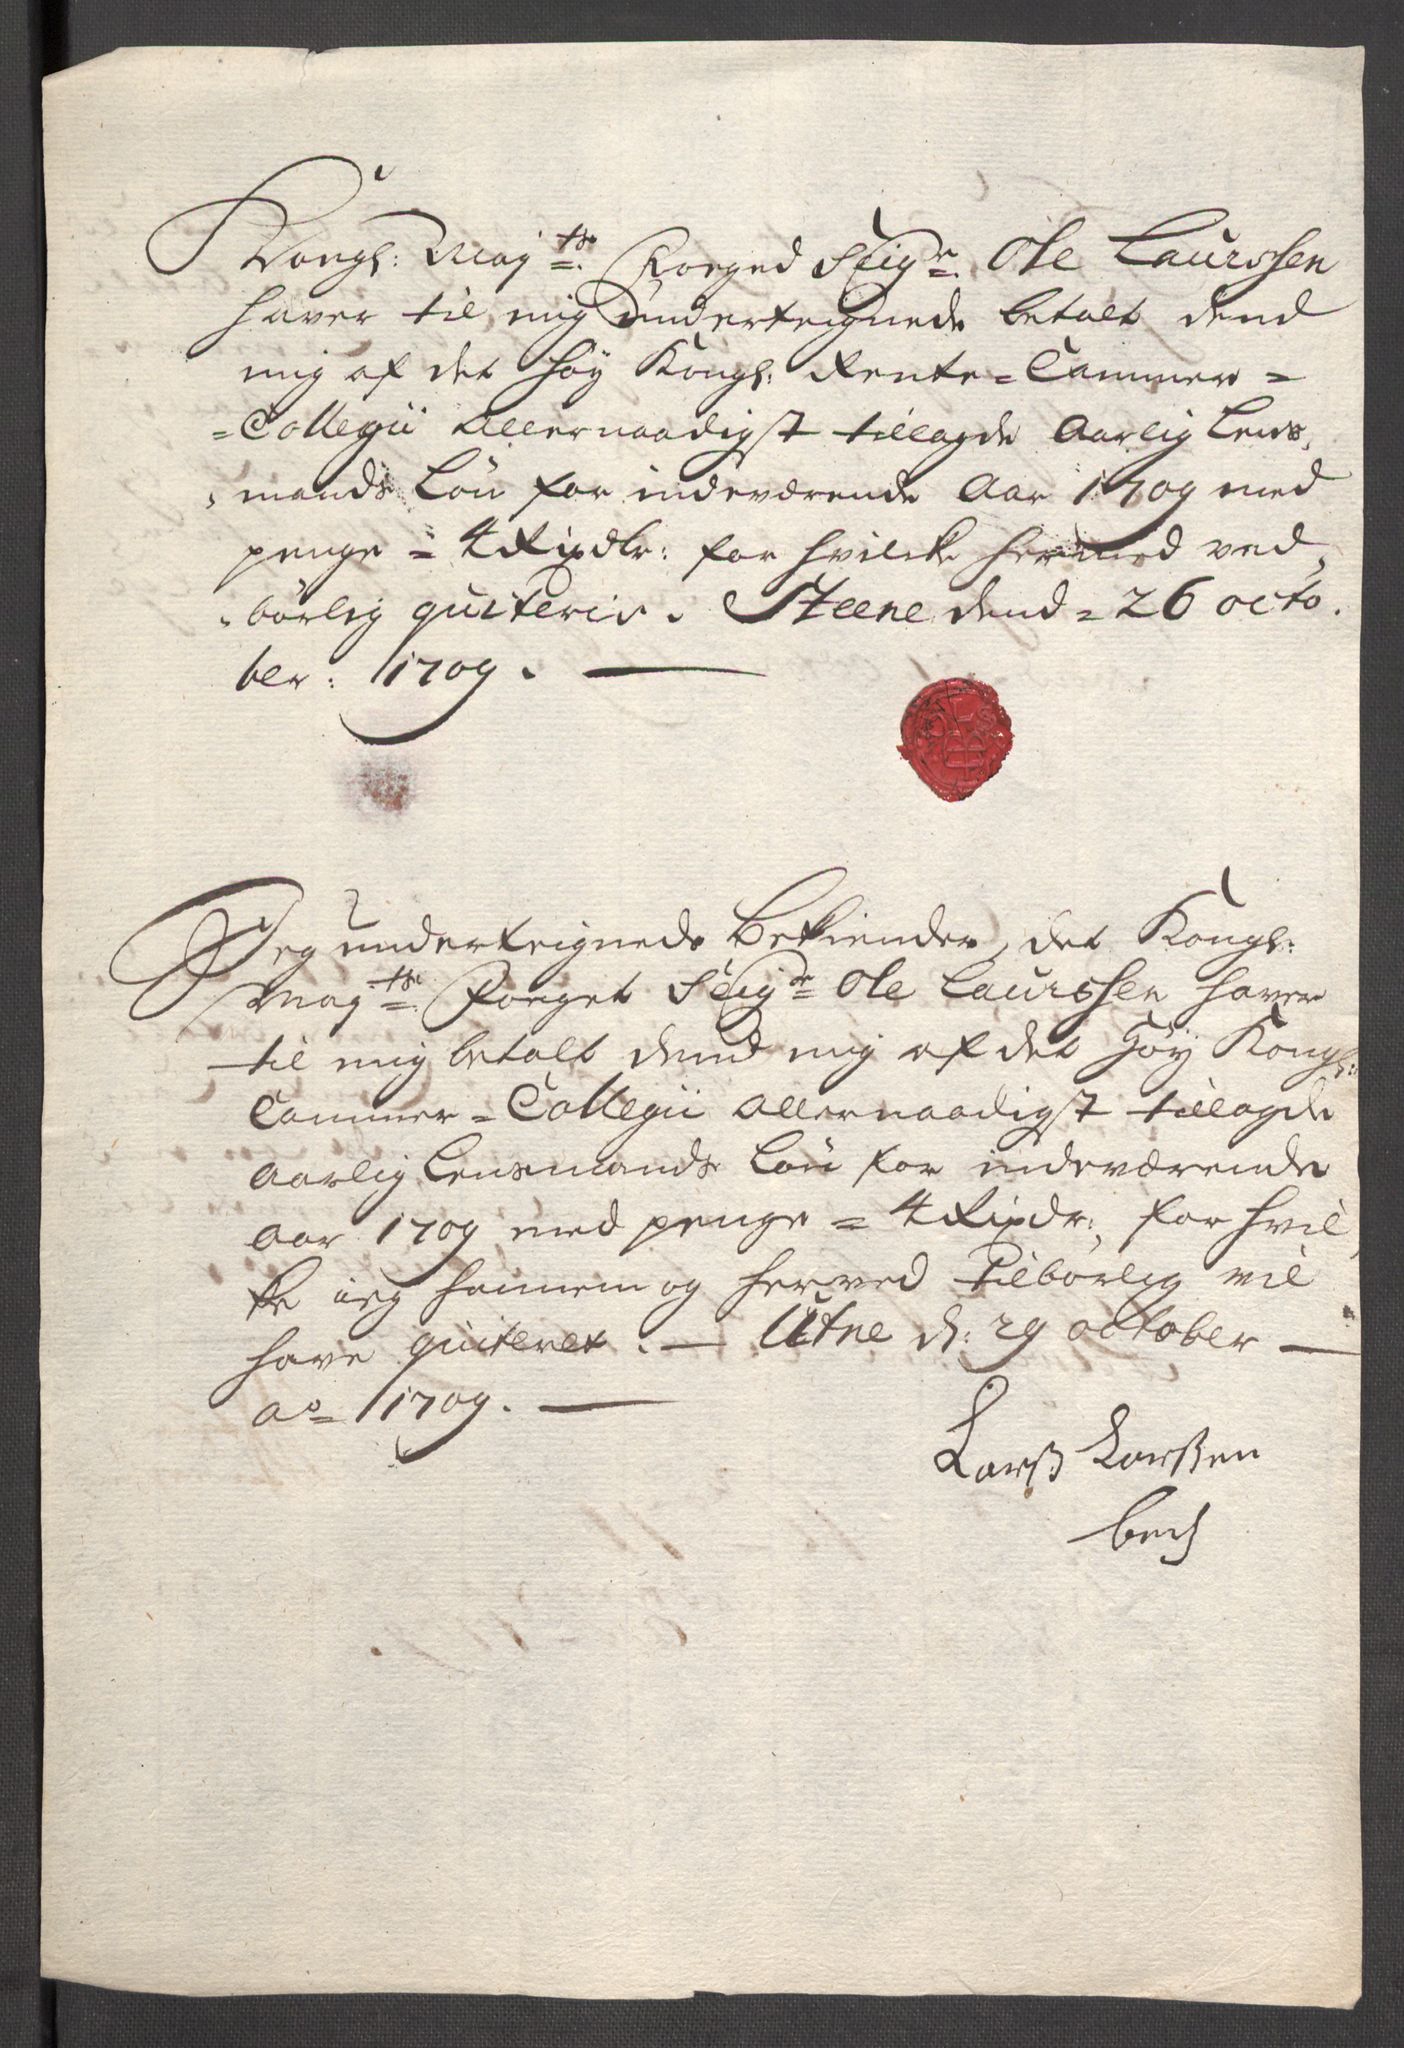 Kongl: Maj^tts: Foeged Seig^r: Ole Laurssen
haver til mig underteignede betalt dend
mig af det höy Kongl: Rente=Cammer=
=Collegii allernaadigst tillagde Aarlig Lens,
,mands Lön for indeværende Aar 1709 med
penge = 4 Rixdlr: for hvilcke hermed ved,
,börlig quiteris. Steene dend = 26 octo,
ber: 1709. —
Jeg underteignede Bekiender, det Kongl:
May^tts: Foeget Seig^r= Ole Laurssen haver
til mig betalt dend mig af det Höy Kongl:
Cammer=Collegii allernaadigst tillagde
aarlig Lensmands Lön for indeværende
aar 1709 med penge = 4 Rixdr:, for hvil,
ke ieg hannem og herved tilbörlig vil
have quiteret. — Utne d: 29 october —
a^o= 1709. —
Larß Larßen